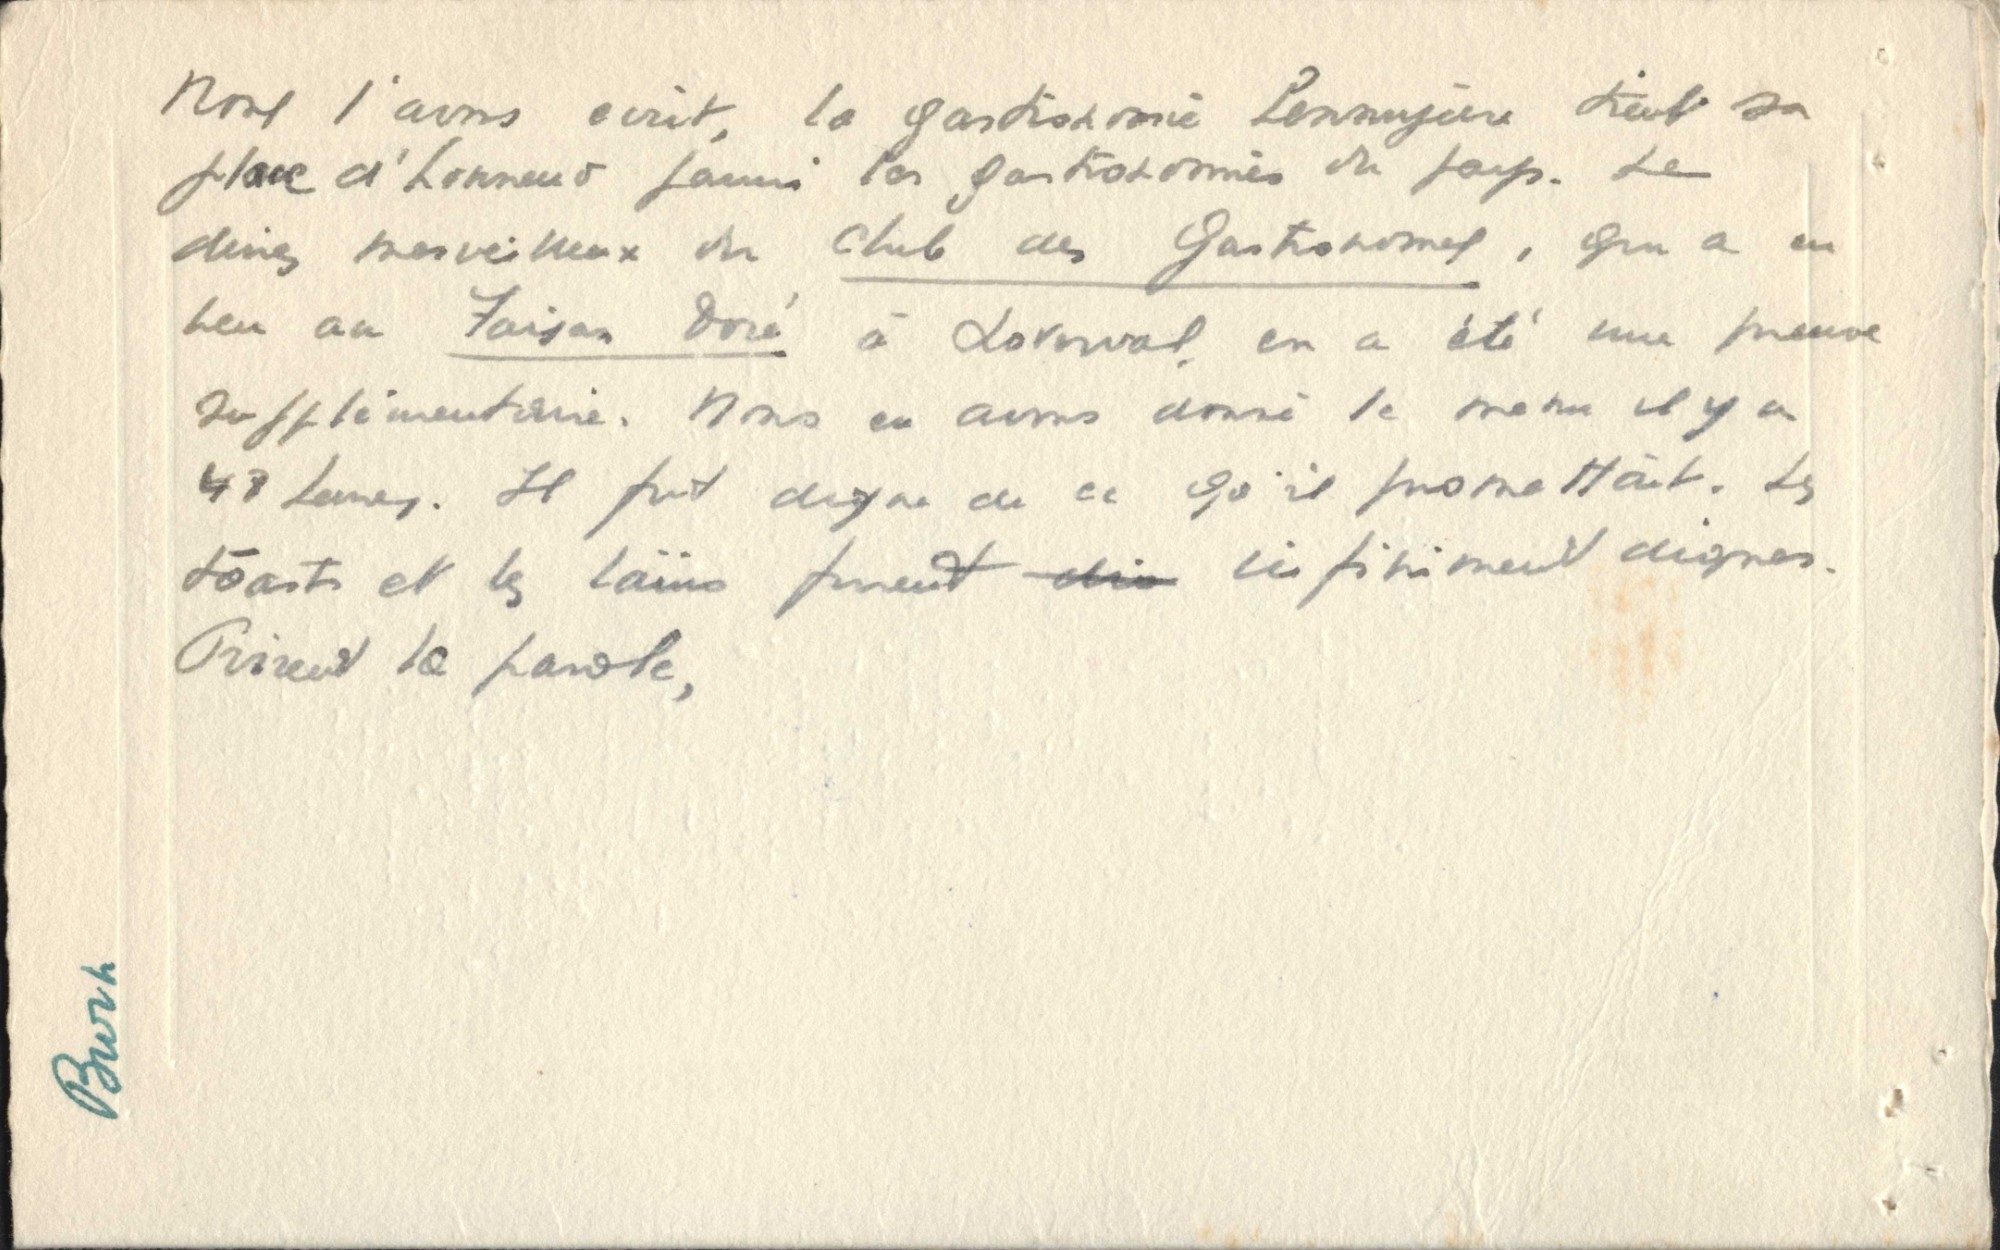 Nous l'avons écrit, la gastronomie hennuyère tient sa
place d'honneur parmi les gastronomies du pays. Le
dîner merveilleux du Club des Gastronomes, qui a eu
lieu au Faisan Doré à Loverval, en a été une preuve
supplémentaire. Nous en avons donné le menu il y a
48 heures. Il fut digne de ce qu'il promettait. Les
toasts et les laïus furent infiniment dignes.
Prirent la parole,